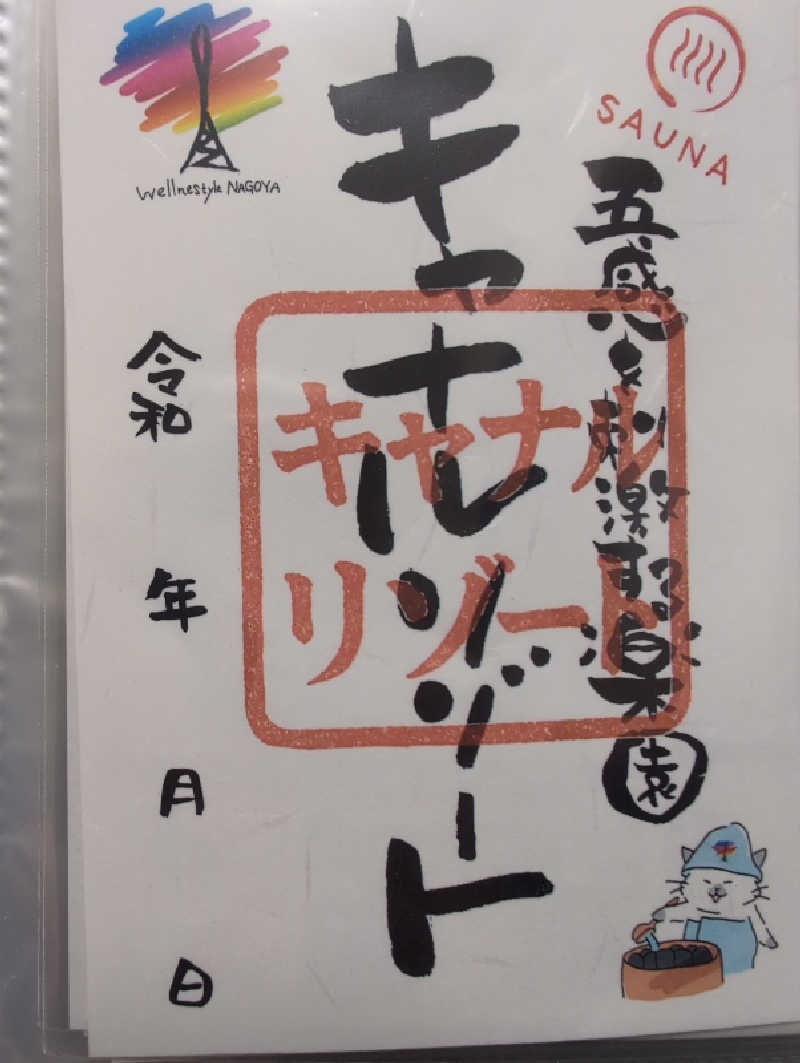 Wellnestyle NAGOYA
SAUNA
五感を刺激する楽園
キャナルリゾート
キャナル
リゾート
令和 年 月 日